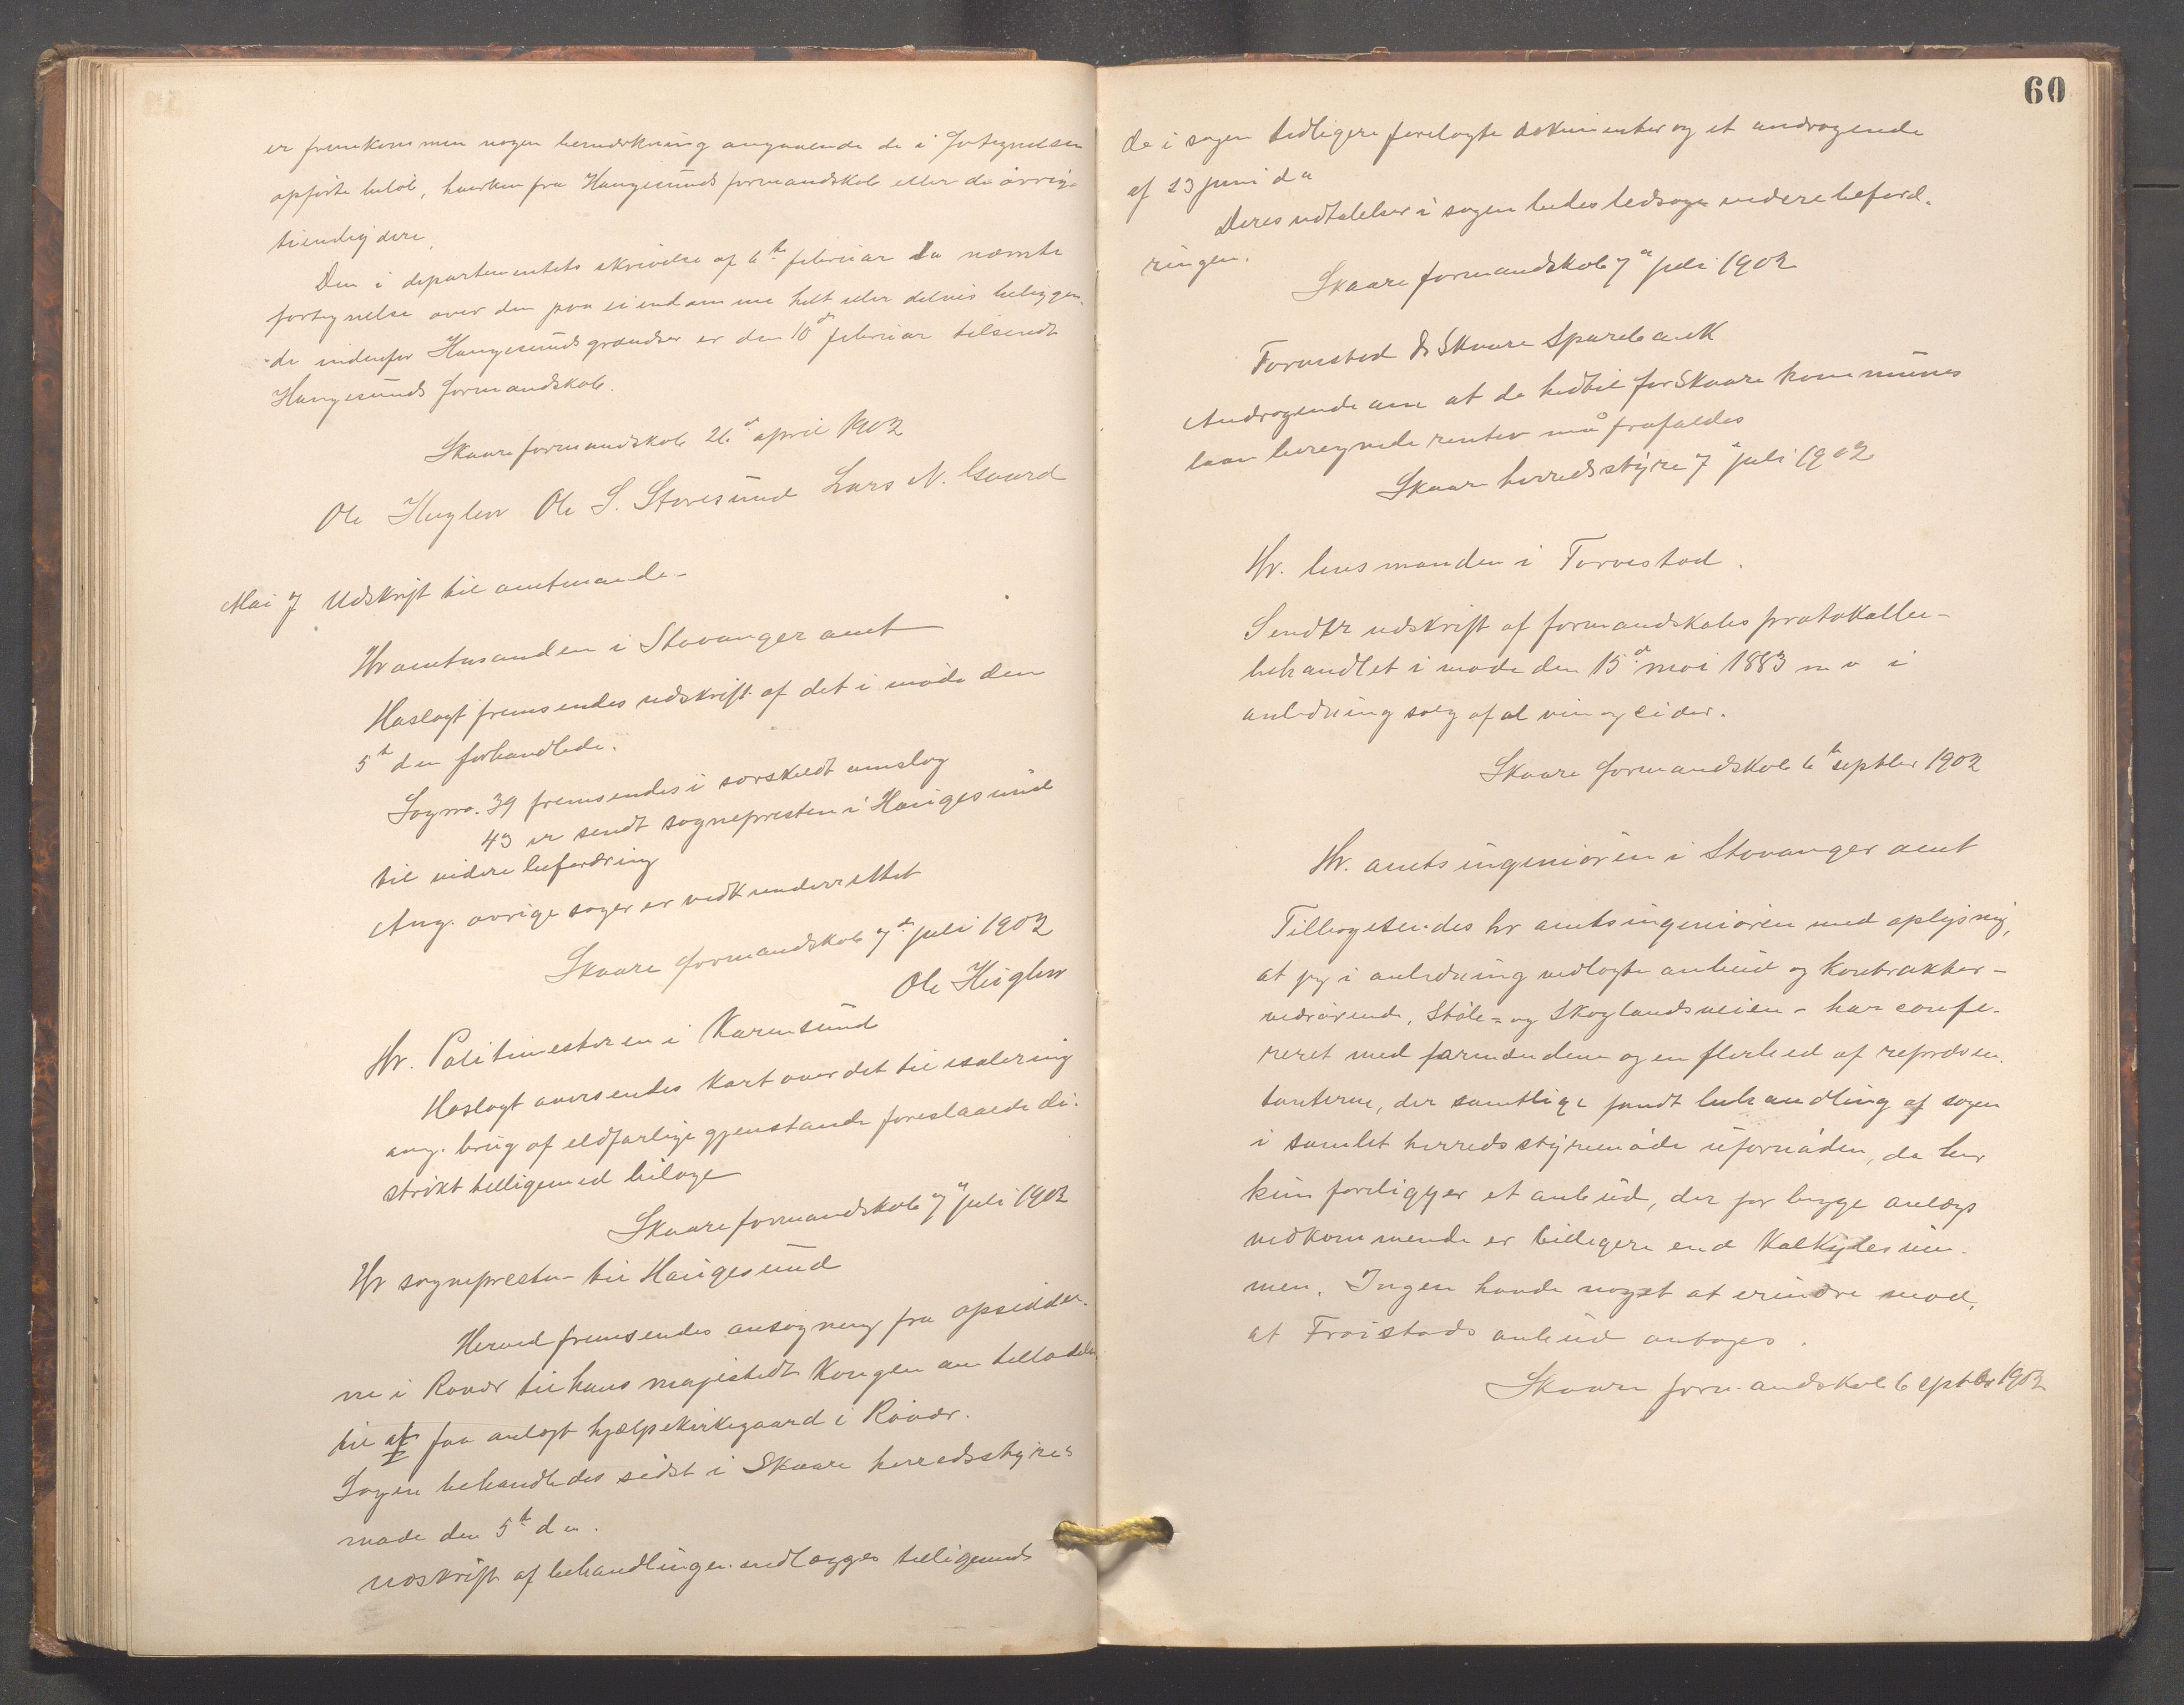 er fremkommen nogen bemærkning angaaende de i fortegnelsen
opførte beløb, hverken fra Haugesunds formandskab eller de øvrige
tiendeydere.
Den i departementets skrivelse af 6te februar da nævnte
fortegnelse over den paa eiendomme helt eller delvis beliggen-
de indenfor Haugesunds grændser er den 10de februar tilsendt
Haugesunds formandskab.
Skaare formandskab 26de april 1902
Ole Hugler Ole S. Storesund Lars N. Gaard
Mai 7 Udskrift til amtmande-
Hr amtmanden i Stavanger amt
Haslagt fremsendes udskrift af det i møde den
5te dm forhandlede.
Sag no. 39 fremsendes i særskildt omslag
43 er sendt sognepresten i Haugesund
til videre befordring
Ang. øvrige sager er vedk underrettet
Skaare formandskab 7de juli 1902
Ole Hugler
Hr. Politimesteren i Karmsund
Haslagt oversendes kart over det til isolering
ang. brug af eldfarlige gjenstande foreslaaede di-
strikt tilligemed bilage
Skaare formandskab 7de juli 1902
Hr sognepresten til Haugesund
Herved fremsendes ansøgning fra opsidder-
ne i Røvær til hans majestæt Kongen om tilladelse
til at faa anlagt hjælpekirkegaard i Røvær.
Sagen behandledes sidst i Skaare herredsstyres
møde den 5te dm.
Udskrift af behandlingen vedlægges tilligemed
60
de i sagen tidligere forelagte dokumenter og et andragende
af 23 juni da
Deres udtalelser i sagen bedes ledsage videre beford-
ringen.
Skaare formandskab 7de juli 1902
Torvestad & Skaare Sparebank
Andragende om at de hidtil for Skaare kommunes
laan beregnede renter må frafaldes
Skaare herredsstyre 7de juli 1902
Hr. lensmanden i Torvestad.
Sendte udskrift af formandskabs protokollen-
behandlet i møde den 15de mai 1883 m v i
anledning salg af øl vin og cider.
Skaare formandskab 6te septbr 1902
Hr. amtsingeniøren i Stavanger amt
Tilbagesendes hr amtsingeniøren med oplysnig,
at jeg i anledning vedlagte anbud og kontrakter-
vedrørende, Støle- og Skoglandsveien - har confe-
reret med formændene og en flerhed af repræsen-
tanterne, der samtlige fandt behandling af sagen
i samlet herredsstyremøde ufornøden, da her
kun foreligger et anbud, der for begge anlægs
vedkommende er billigere end Kalkylesum-
men. Ingen havde noget at erindre mod,
at Frøistads anbud antages.
Skaare formandskab 6 eptbr 1902